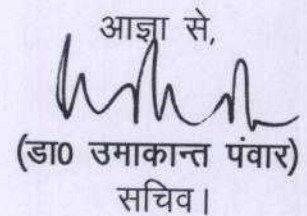 आज्ञा से,
(डा0 उमाकान्त पंवार)
सचिव।